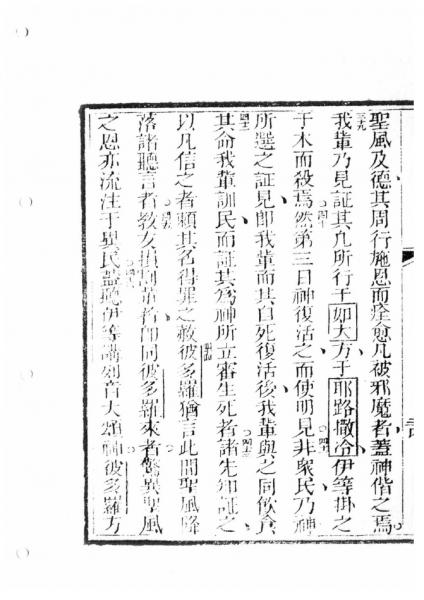 聖風及德其周行施恩而痊愈凡被邪魔者蓋神偕之焉
三九
我輩乃見証其凡所行于如大方于耶路撒冷伊等掛之
于木而殺焉然第三日神復活之而使明見非眾民乃神
四十
四一
所選之証見即我輩而其自死復活後我輩與之同飲食
四二
其命我輩訓民而証其為神所立審生死者諸先知証之
四三
以凡信之者賴其名得罪之赦彼多羅猶言此間聖風降
四四
落諸聽言者教友損割輩者即同彼多羅來者驚異聖風
四五
之恩亦流注于異民蓋聽伊等講列音大頌神彼多羅方
四六